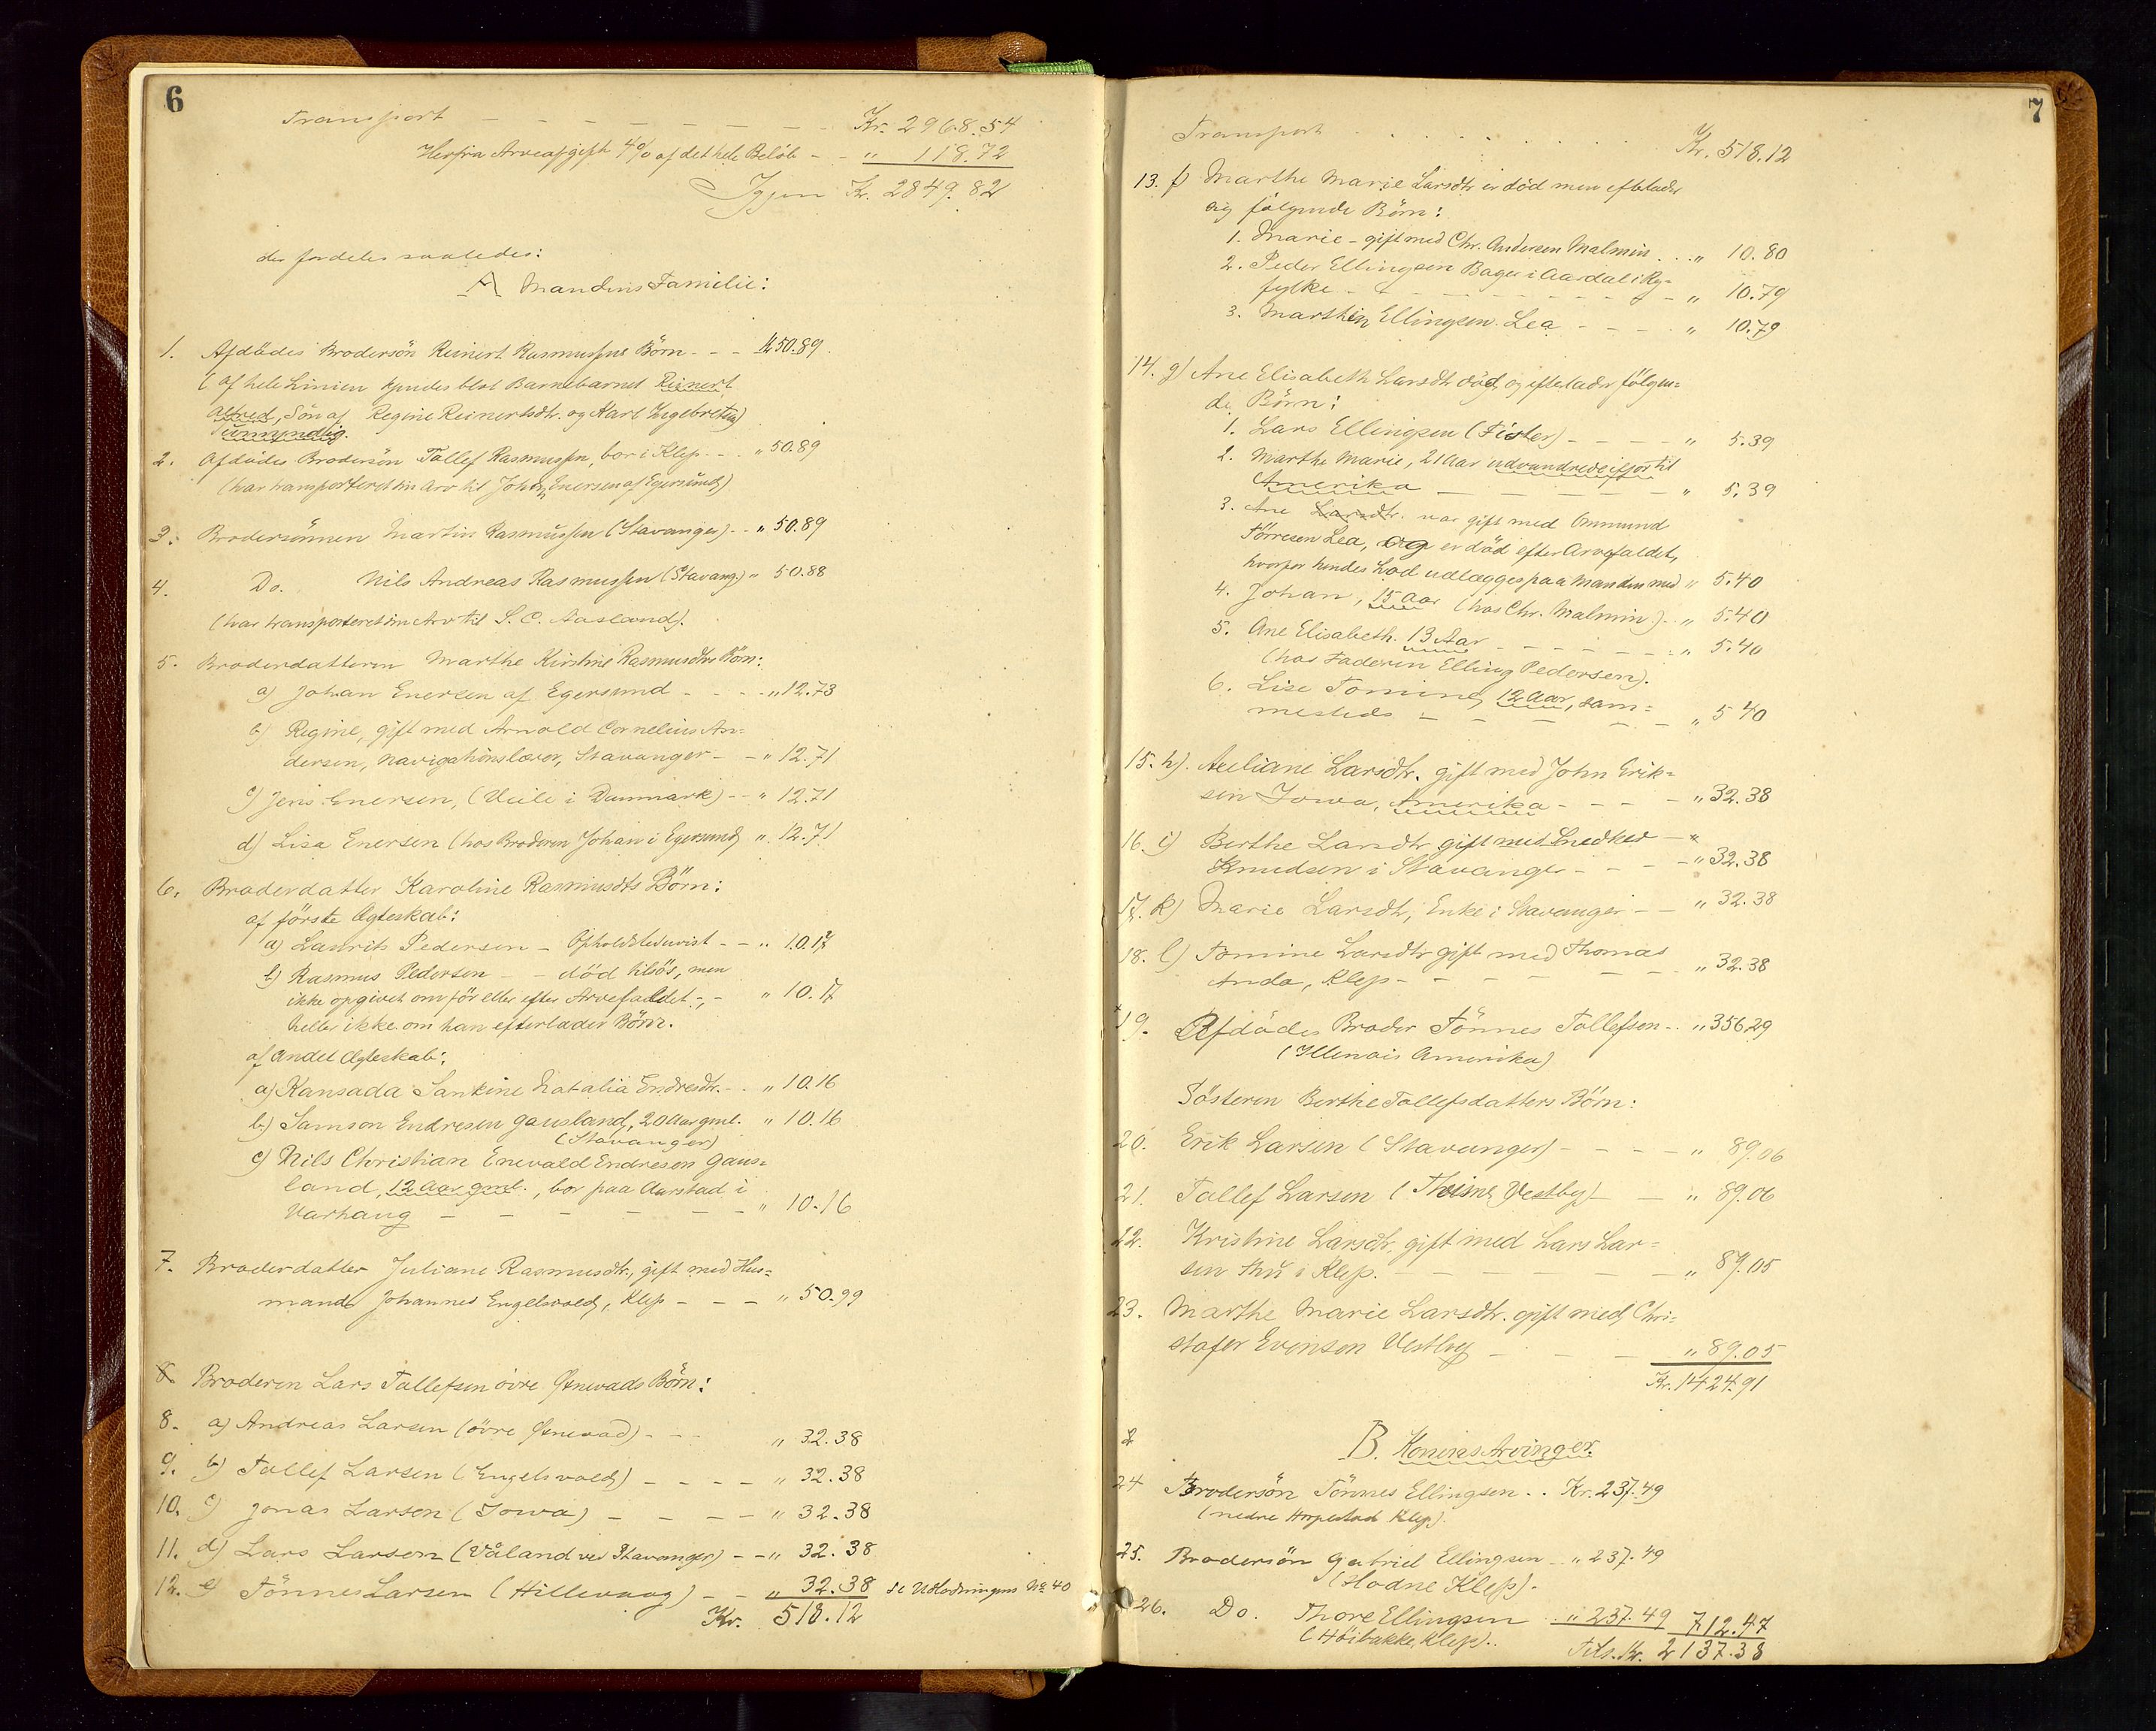 6
Transport - - - - - - - - Kr. 2968.54
Herfra Arveafgift 4% af det hele Beløb - - „ 118.72
Igjen Kr. 2849.82
der fordeles saaledes:
A Mandens Familie:
1. Afdødes Brodersön Reinert Rasmussens Börn - - - Kr 50.89.
(af hele Linien kjendes blot Barnebarnet Reinert
Alfred, Sön af Regine Reinertsdtr. og Karl Ingebretsen)
Uumyndig.
2. Afdødes Brodersön Tollef Rasmussen, bor i Klep - - „ 50.89
(har transporteret sin Arv til Johan Enersen af Egersund)
3. Brodersönnen Martin Rasmussen (Stavanger) - - „ 50.89
4. Do. Nils Andreas Rasmussen (Stavang.) „ 50.88
(har transporteret sin Arv til S. C. Aasland).
5. Broderdatteren Marthe Kirstine Rasmusdtrs Börn:
a) Johan Enersen af Egersund - - - - „ 12.73
b) Regine, gift med Arnold Cornelius An=
dersen, Navigationslærer, Stavanger - - „ 12.71
c) Jens Enersen, (Veile i Danmark) - - „ 12.71
d) Lisa Enersen (hos Broderen Johan i Egersund) „ 12.71
6. Broderdatter Karoline Rasmusdts Börn:
af förste Ægteskab:
a) Laurits Pedersen - Opholdsted uvist - - „ 10.17
b) Rasmus Pedersen - - död tilsös, men
ikke opgivet om för eller efter Arvefaldet -,- „ 10.17
heller ikke om han efterlader Börn.
af andet Ægteskab:
a) Kansada Sankine Natalia Endresdtr. - . „ 10.16
b.) Samson Endresen Gausland, 20 Aar gml. „ 10.16
(Stavanger)
c) Nils Christian Enevald Endresen Gaus=
land, 12 Aar gml., bor paa Aarstad i
Varhaug - - - - - - - „ 10.16
7. Broderdatter Juliane Rasmusdtr., gift med Hus=
mand Johannes Engelsvold, Klep - - - „ 50.99
8. Broderen Lars Tollefsen övre Ønevads Börn:
8. a) Andreas Larsen (övre Ønevad) - - - „ 32.38
9. b) Tollef Larsen (Engelsvold) - - - - „ 32.38
10. c) Jonas Larsen (Iowa) - - - - „ 32.38
11. d) Lars Larsen (Våland ved Stavanger) - - „ 32.38
12. e) Tönnes Larsen (Hillevaag) - - „ 32.38 se Udlodningens No 40
Kr. 518.12
7
Transport . . . . . . . Kr. 518.12
13. f) Marthe Marie Larsdtr er död men efterlader
sig følgende Börn:
1. Marie - gift med Chr. Andersen Malmin . . . „ 10.80
2. Peder Ellingsen Bager i Aardal i Ry=
fylke - - - - - - - - - „ 10.79
3. Marthin Ellingsen Lea - - - - „ 10.79
14. g) Ane Elisabeth Larsdtr död, og efterlader fölgen=
de Börn:
1. Lars Ellingsen (Fister) - - - - „ 5.39
2. Marthe Marie, 21 Aar udvandrede ifjor til
Amerika - - - - - - „ 5.39
3. Ane Larsdtr. var gift med Ommund
Törresen Lea, og er död efter Arvefaldet,
hvorfor hendes Lod udlægges paa Manden med „ 5.40
4. Johan, 15 Aar (hos Chr. Malmin) - „ 5.40
5. Ane Elisabeth. 13 Aar - - - - - - „ 5.40
(hos Faderen Elling Pedersen).
6. Lise Tomine, 12 Aar, sam=
mesteds - - - - - - „ 5 40
15. h). Aeeliane Larsdtr. gift med John Erik=
sen Iowa, Amerika - - - - „ 32.38
16. i) Berthe Larsdtr gift med Snedker - „
Knudsen i Stavanger - - - - „ 32.38
17. k) Marie Larsdtr, Enke i Stavanger - - „ 32.38
18. l) Tomine Larsdtr gift med Thomas
Anda, Klep - - - - - - „ 32.38
19. Afdødes Broder Tönnes Tollefsen - . „ 356.29
(Illenois Amerika)
Sösteren Berthe Tollefsdatters Börn:
20. Erik Larsen (Stavanger) - - - - „ 89.06
21. Tollef Larsen (Thime Vestby) - - „ 89.06
22. Kristine Larsdtr, gift med Lars Lar=
sen Thu i Klep. - - - - - „ 89.05
23. Marthe Marie Larsdtr. gift med Chri=
stofer Evensen Vestbey - - - „ 89.05
Kr. 1424.91
B. Konens Arvinger.
24 Brodersön Tönnes Ellingsen . . Kr. 237.49
(nedre Horpestad Klep).
25. Brodersön Gabriel Ellingsen - „ 237.49
(Hodne Klep).
26. Do. Thore Ellingsen . „ 237.49 712.47
(Höibakke, Klep).. Tils. Kr. 2137.38